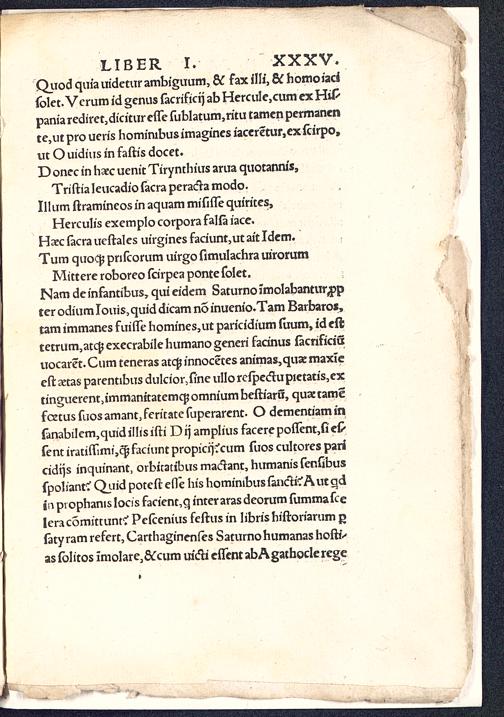 LIBER I. XXXV.
Quod quia uidetur ambiguum, & fax illi, & homo iaci
solet. Verum id genus sacrificij ab Hercule, cum ex His-
pania rediret, dicitur esse sublatum, ritu tamen permanen
te, ut pro ueris hominibus imagines iacerẽtur, ex scirpo,
ut Ouidius in fastis docet.
Donec in hæc uenit Tirynthius arua quotannis,
Tristia leucadio sacra peracta modo.
Illum stramineos in aquam misisse quirites,
Herculis exemplo corpora falsa iace.
Hæc sacra uestales uirgines faciunt, ut ait Idem.
Tum quoqꝫ priscorum uirgo simulachra uirorum
Mittere roboreo scirpea ponte solet.
Nam de infantibus, qui eidem Saturno ĩmolabantur, ꝓp
ter odium Iouis, quid dicam nõ inuenio. Tam Barbaros,
tam immanes fuisse homines, ut paricidium suum, id est
tetrum, atqꝫ execrabile humano generi facinus sacrificiũ
uocarẽt. Cum teneras atqꝫ innocẽtes animas, quæ maxĩe
est ætas parentibus dulcior, sine ullo respectu pietatis, ex
tinguerent, immanitatemqꝫ omnium bestiarũ, quæ tamẽ
fœtus suos amant, feritate superarent. O dementiam in
sanabilem, quid illis isti Dij amplius facere possent, si es-
sent iratissimi, ꝙ̃ faciunt propicij? cum suos cultores pari
cidijs inquinant, orbitatibus mactant, humanis sensibus
spoliant? Quid potest esse his hominibus sancti? Aut qd
in prophanis locis facient, q inter aras deorum summa sce
lera cõmittunt? Pescenius festus in libris historiarum ꝑ
satyram refert, Carthaginenses Saturno humanas hosti-
as solitos ĩmolare, & cum uicti essent ab Agathocle rege